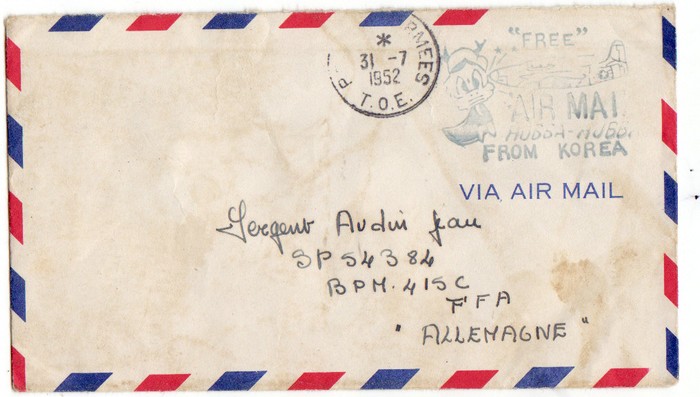 * ARMEES
31 -7
1952
T.O.E.
"FREE"
AIR MAI
HUBBA-HUBBA
FROM KOREA
VIA AIR MAIL
Sergent Audin Jean
SP 54384
BPM. 415C
FFA
"ALLEMAGNE"